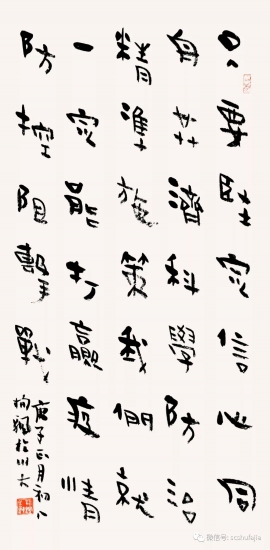 只要堅定信心同
舟共濟科學防治
精準施策我們就
一定能打贏疫情
防控阻擊戰
庚子正月初八
於川大
微信号: scshufajia